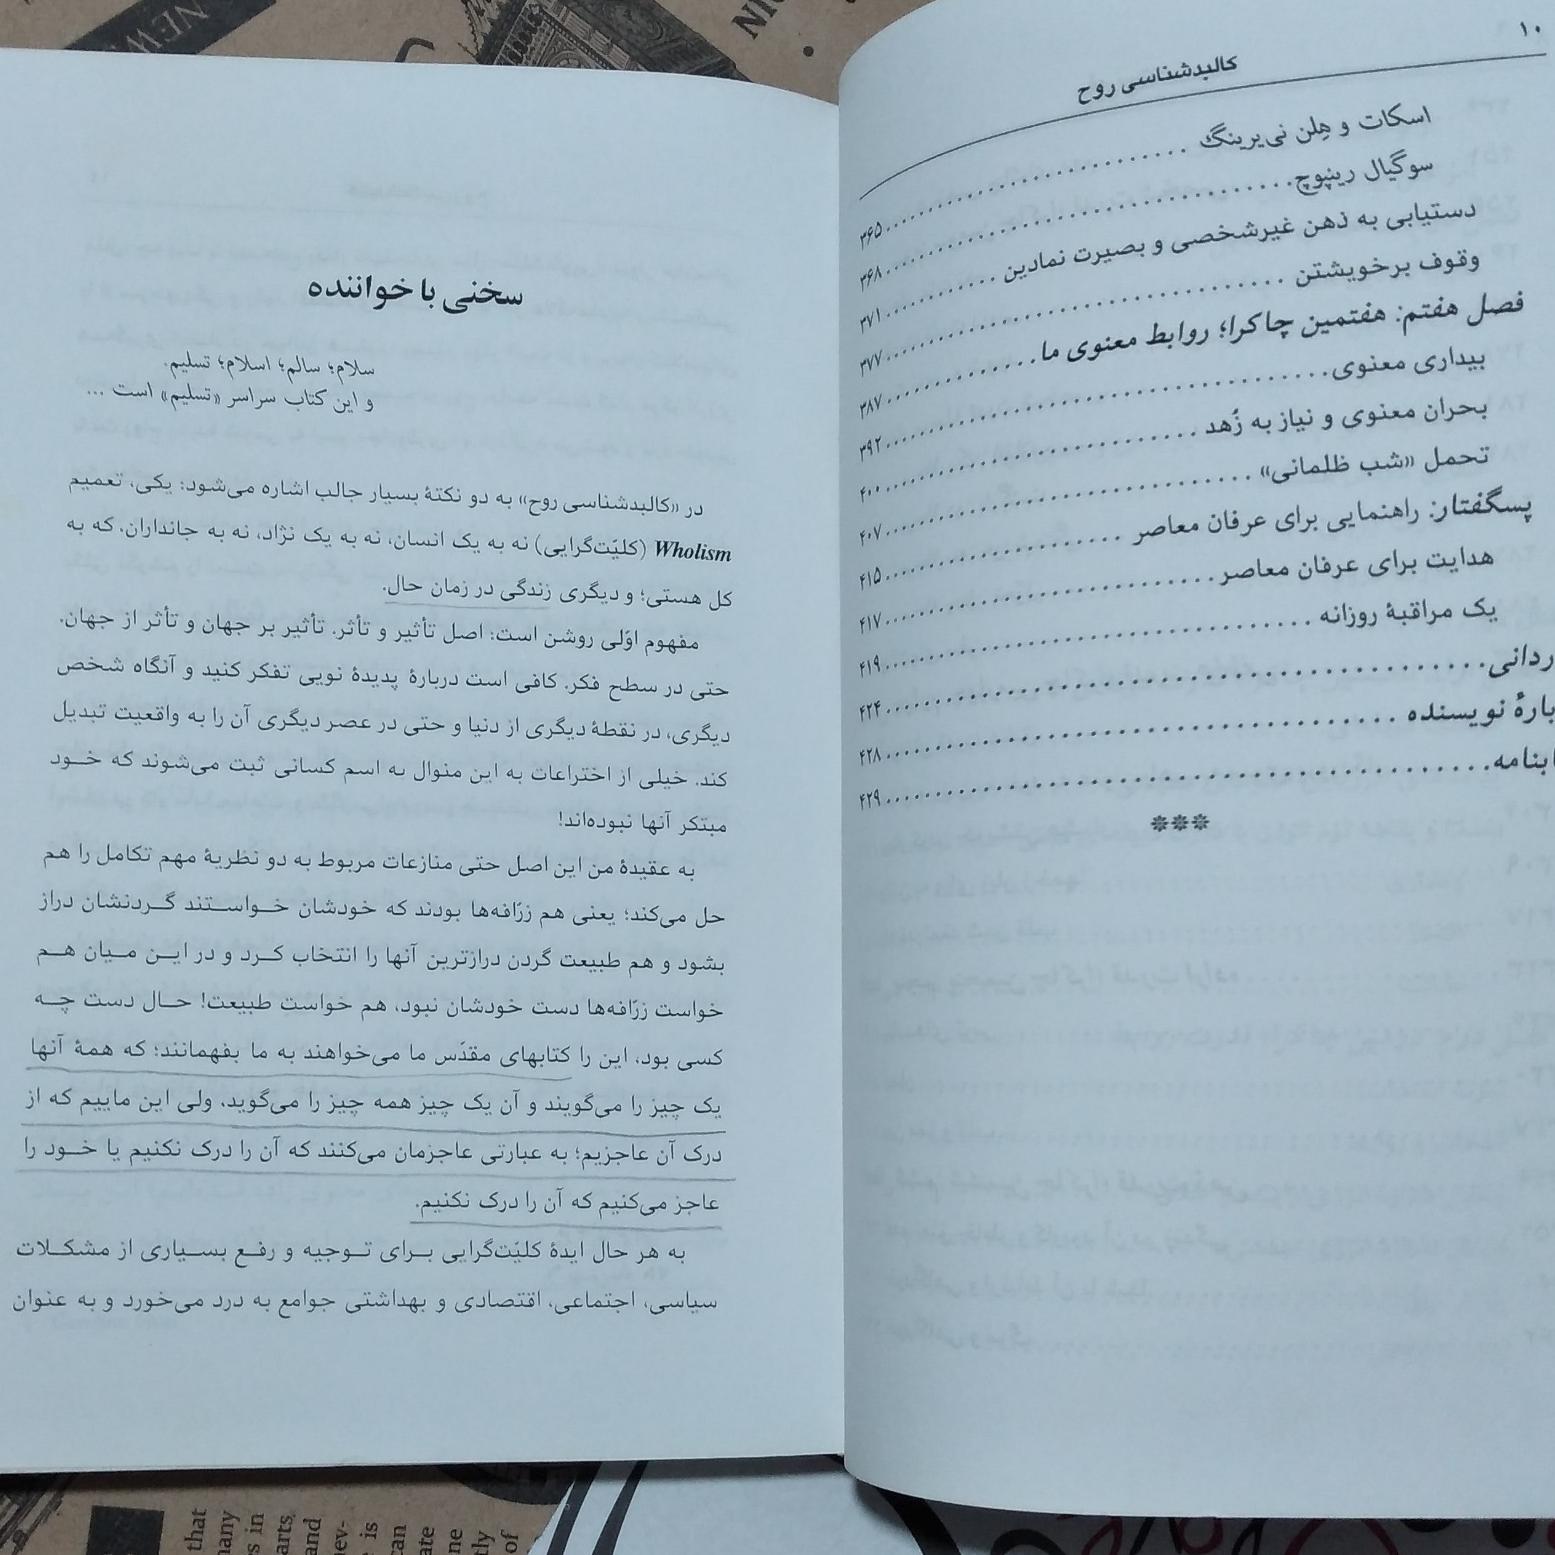 ۱۰
کالبدشناسی روح
اسکات و هِلن نی‌یرینگ ........ ۳۶۵
سوگیال رینپوچ ........ ۳۶۸
دستیابی به ذهن غیرشخصی و بصیرت نمادین ........ ۳۷۱
وقوف برخویشتن ........ ۳۷۷
فصل هفتم: هفتمین چاکرا؛ روابط معنوی ما ........ ۳۸۷
بیداری معنوی ........ ۳۹۲
بحران معنوی و نیاز به زُهد ........ ۴۰۰
تحمل «شب ظلمانی» ........ ۴۰۷
پسگفتار: راهنمایی برای عرفان معاصر ........ ۴۱۵
هدایت برای عرفان معاصر ........ ۴۱۷
یک مراقبهٔ روزانه ........ ۴۱۹
ردانی ........ ۴۲۴
بارهٔ نویسنده ........ ۴۲۸
ابنامه ........ ۴۲۹
***
سخنی با خواننده
سلام؛ سالم؛ اسلام؛ تسلیم.
و این کتاب سراسر «تسلیم» است ...
در «کالبدشناسی روح» به دو نکتهٔ بسیار جالب اشاره می‌شود: یکی، تعمیم
Wholism (کلیّت‌گرایی) نه به یک انسان، نه به یک نژاد، نه به جانداران، که به
کل هستی؛ و دیگری زندگی در زمان حال.
مفهوم اوّلی روشن است: اصل تأثیر و تأثر. تأثیر بر جهان و تأثر از جهان.
حتی در سطح فکر. کافی است دربارهٔ پدیدهٔ نویی تفکر کنید و آنگاه شخص
دیگری، در نقطهٔ دیگری از دنیا و حتی در عصر دیگری آن را به واقعیت تبدیل
کند. خیلی از اختراعات به این منوال به اسم کسانی ثبت می‌شوند که خود
مبتکر آنها نبوده‌اند!
به عقیدهٔ من این اصل حتی منازعات مربوط به دو نظریهٔ مهم تکامل را هم
حل می‌کند؛ یعنی هم زرّافه‌ها بودند که خودشان خواستند گردنشان دراز
بشود و هم طبیعت گردن درازترین آنها را انتخاب کرد و در این میان هم
خواست زرّافه‌ها دست خودشان نبود، هم خواست طبیعت! حال دست چه
کسی بود، این را کتابهای مقدّس ما می‌خواهند به ما بفهمانند؛ که همهٔ آنها
یک چیز را می‌گویند و آن یک چیز همه چیز را می‌گوید، ولی این ماییم که از
درک آن عاجزیم؛ به عبارتی عاجزمان می‌کنند که آن را درک نکنیم یا خود را
عاجز می‌کنیم که آن را درک نکنیم.
به هر حال ایدهٔ کلیّت‌گرایی برای توجیه و رفع بسیاری از مشکلات
سیاسی، اجتماعی، اقتصادی و بهداشتی جوامع به درد می‌خورد و به عنوان